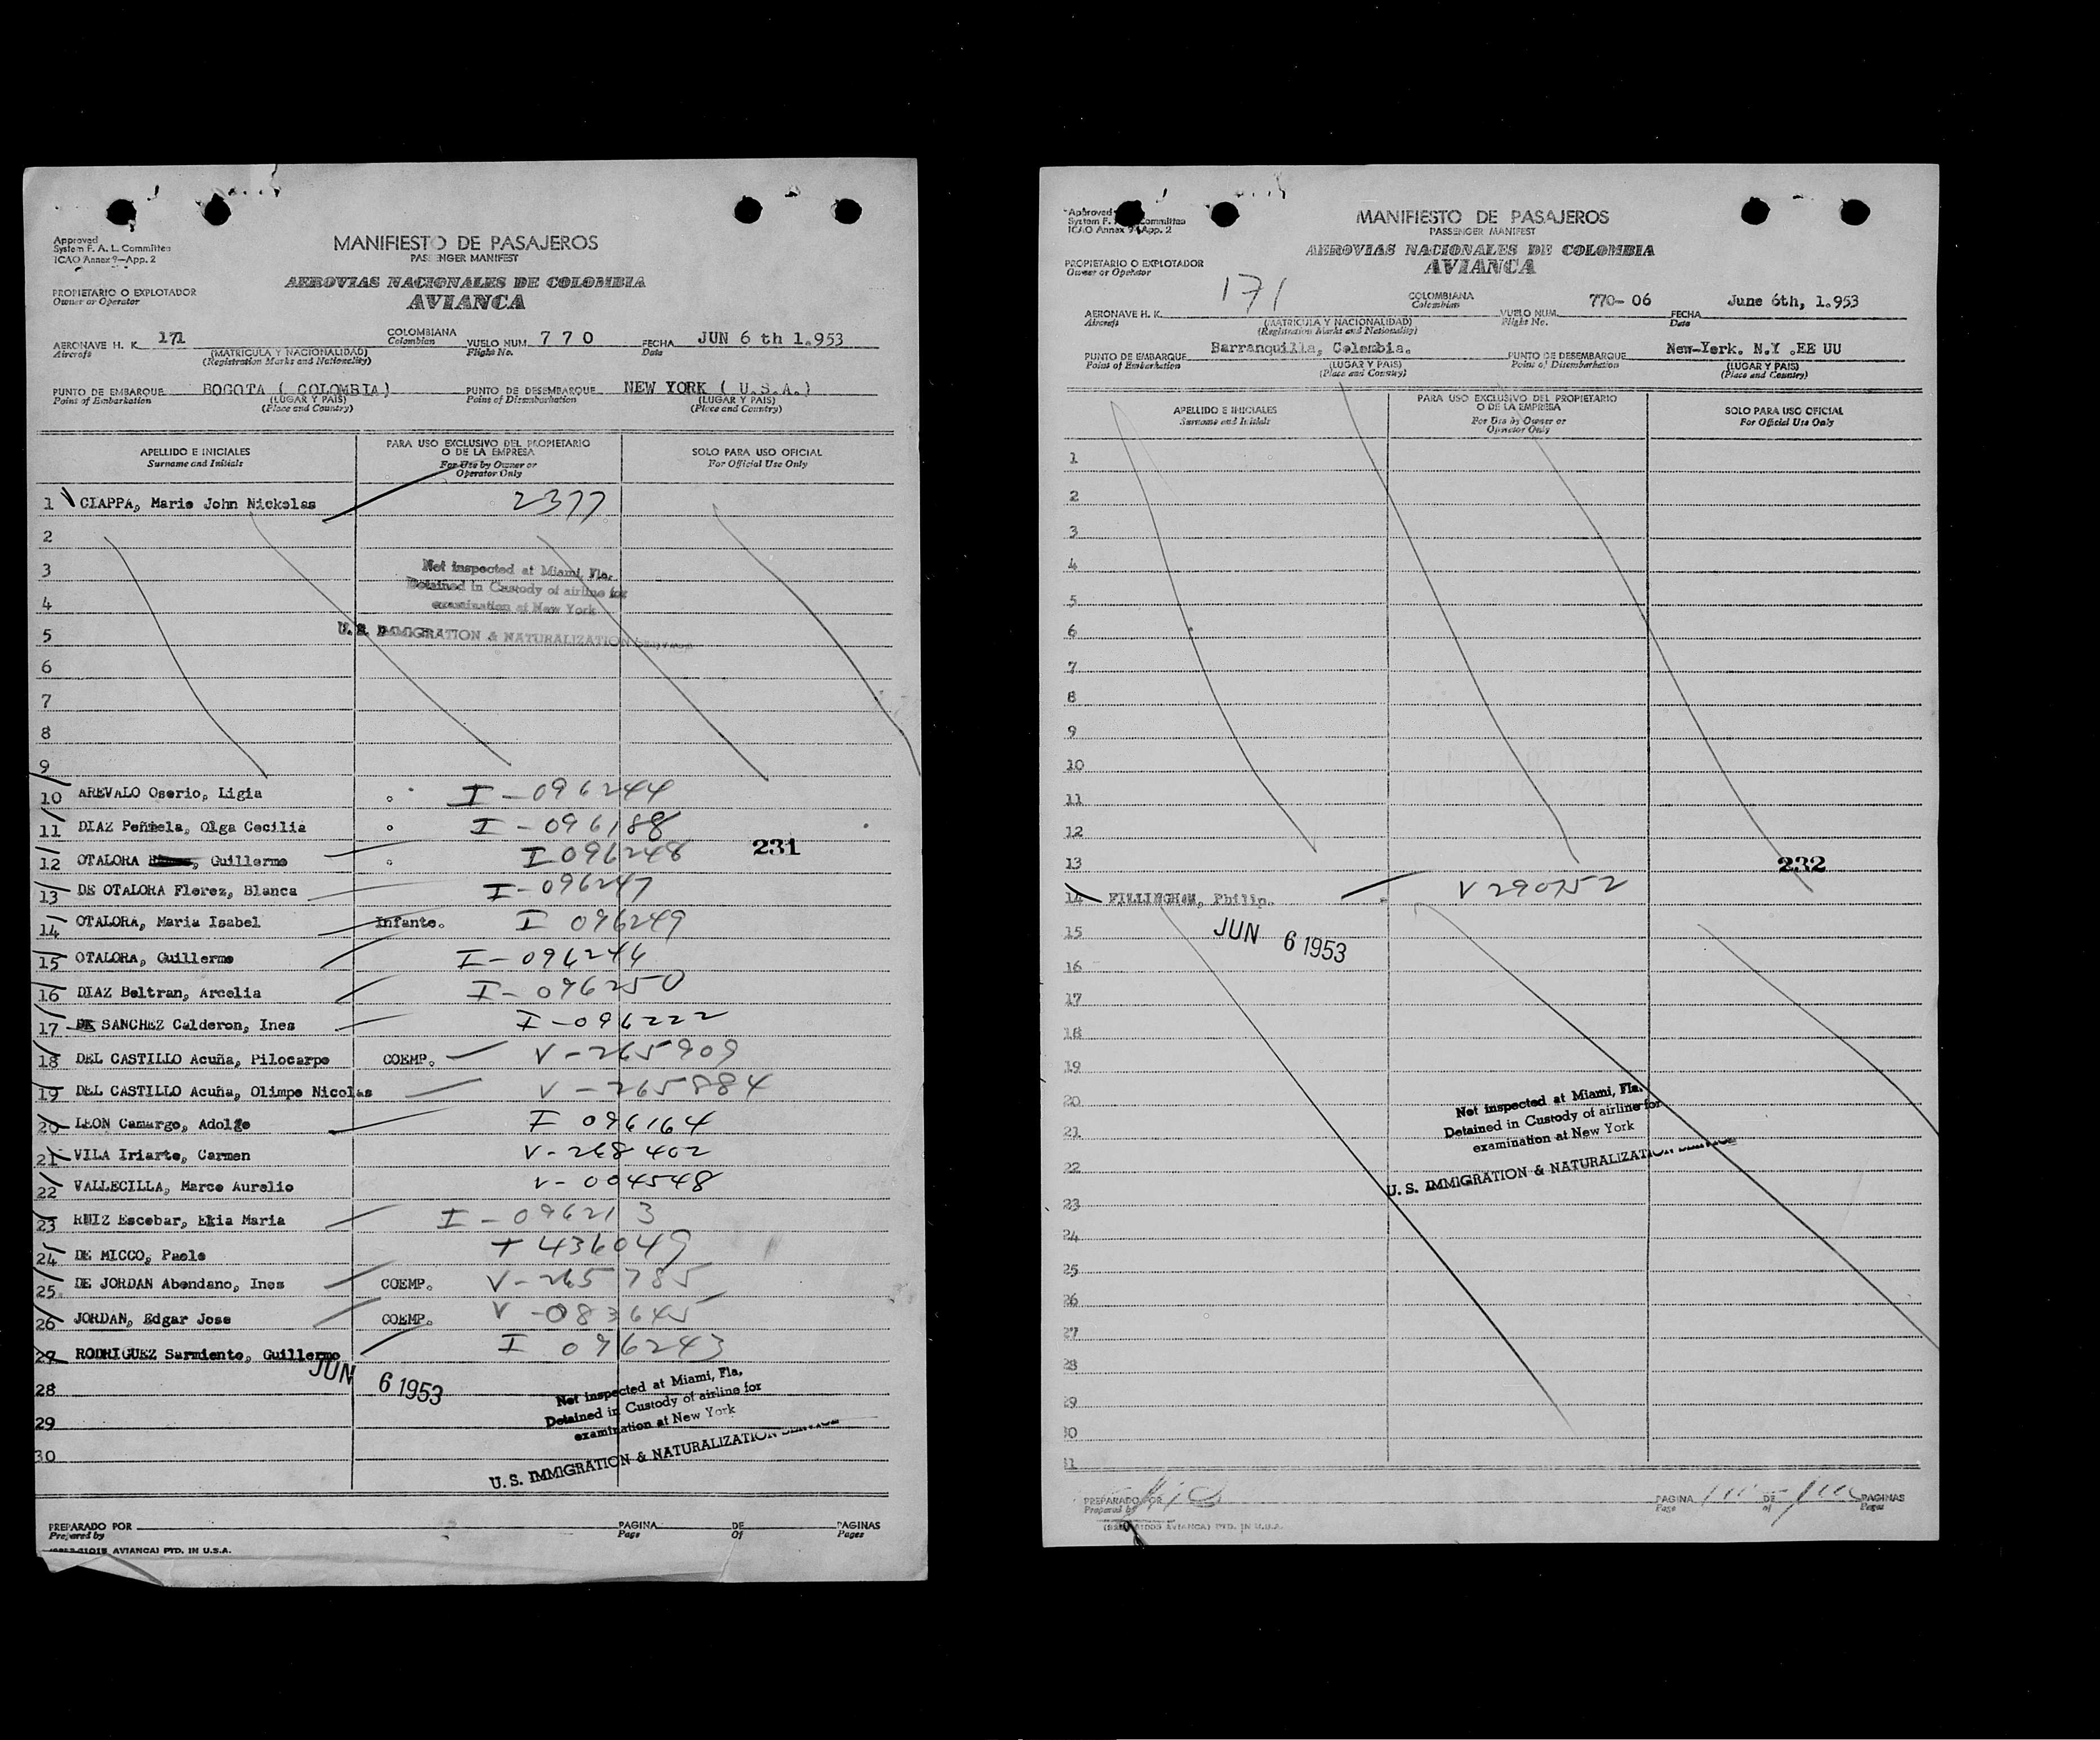 Approved
System F. A. L. Committee
ICAO Annex 9—App. 2
MANIFIESTO DE PASAJEROS
PASSENGER MANIFEST
AEROVIAS NACIONALES DE COLOMBIA
AVIANCA
PROPIETARIO O EXPLOTADOR
Owner or Operator
AERONAVE H. K. 171 COLOMBIANA VUELO NUM. 7 7 0 FECHA JUN 6 th 1.953
Aircraft (MATRICULA Y NACIONALIDAD) Colombian Flight No. Date
(Registration Marks and Nationality)
PUNTO DE EMBARQUE BOGOTA ( COLOMBIA) PUNTO DE DESEMBARQUE NEW YORK ( U.S.A.)
Point of Embarkation (LUGAR Y PAIS) Point of Disembarkation (LUGAR Y PAIS)
(Place and Country) (Place and Country)
APELLIDO E INICIALES PARA USO EXCLUSIVO DEL PROPIETARIO O DE LA EMPRESA SOLO PARA USO OFICIAL
Surname and Initials For Use by Owner or Operator Only For Official Use Only
1 CIAPPA, Marie John Nickolas 2377
2
3 Not inspected at Miami, Fla.
4 Detained in Custody of airline for
examination at New York
5 U. S. IMMIGRATION & NATURALIZATION SERVICE
6
7
8
9
10 AREVALO Osorio, Ligia I-096244
11 DIAZ Peñuela, Olga Cecilia I-096188
12 OTALORA , Guillermo I 096248 231
13 DE OTALORA Florez, Blanca I-096247
14 OTALORA, Maria Isabel Infante. I 096249
15 OTALORA, Guillermo I-096246
16 DIAZ Beltran, Arcelia I-096250
17 DE SANCHEZ Calderon, Ines I-096222
18 DEL CASTILLO Acuña, Pilocarpo COEMP. V-265909
19 DEL CASTILLO Acuña, Olimpo Nicolas V-265884
20 LEON Camargo, Adolfo I 096164
21 VILA Iriarte, Carmen V-268402
22 VALLECILLA, Marco Aurelio V-004548
23 RUIZ Escobar, Elia Maria I-096213
24 DE MICCO, Paolo T 436049
25 DE JORDAN Abendano, Ines COEMP. V-265785
26 JORDAN, Edgar Jose COEMP. V-083645
27 RODRIGUEZ Sarmiento, Guillermo I 096243
JUN 6 1953
28
Not inspected at Miami, Fla.
Detained in Custody of airline for
29
examination at New York
30
U. S. IMMIGRATION & NATURALIZATION SERVICE
PREPARADO POR PAGINA DE PAGINAS
Prepared by Page Of Pages
AVIANCA) PTD. IN U.S.A.
Approved
System F. A. L. Committee
ICAO Annex 9 App. 2
MANIFIESTO DE PASAJEROS
PASSENGER MANIFEST
AEROVIAS NACIONALES DE COLOMBIA
AVIANCA
PROPIETARIO O EXPLOTADOR
Owner or Operator
AERONAVE H. K. 171 COLOMBIANA VUELO NUM. 770-06 FECHA June 6th, 1.953
Aircraft (MATRICULA Y NACIONALIDAD) Colombian Flight No. Date
(Registration Marks and Nationality)
PUNTO DE EMBARQUE Barranquilla, Colombia. PUNTO DE DESEMBARQUE New-York. N.Y .EE UU
Point of Embarkation (LUGAR Y PAIS) Point of Disembarkation (LUGAR Y PAIS)
(Place and Country) (Place and Country)
APELLIDO E INICIALES PARA USO EXCLUSIVO DEL PROPIETARIO O DE LA EMPRESA SOLO PARA USO OFICIAL
Surname and Initials For Use by Owner or Operator Only For Official Use Only
1
2
3
4
5
6
7
8
9
10
11
12
13 232
14 FILLINGHAM, Philip. V 290752
15 JUN 6 1953
16
17
18
19
20 Not inspected at Miami, Fla.
21 Detained in Custody of airline for
examination at New York
22 U. S. IMMIGRATION & NATURALIZATION SERVICE
23
24
25
26
27
28
29
30
31
PREPARADO POR PAGINA DE PAGINAS
Prepared by Page of Pages
AVIANCA) PTD. IN U.S.A.